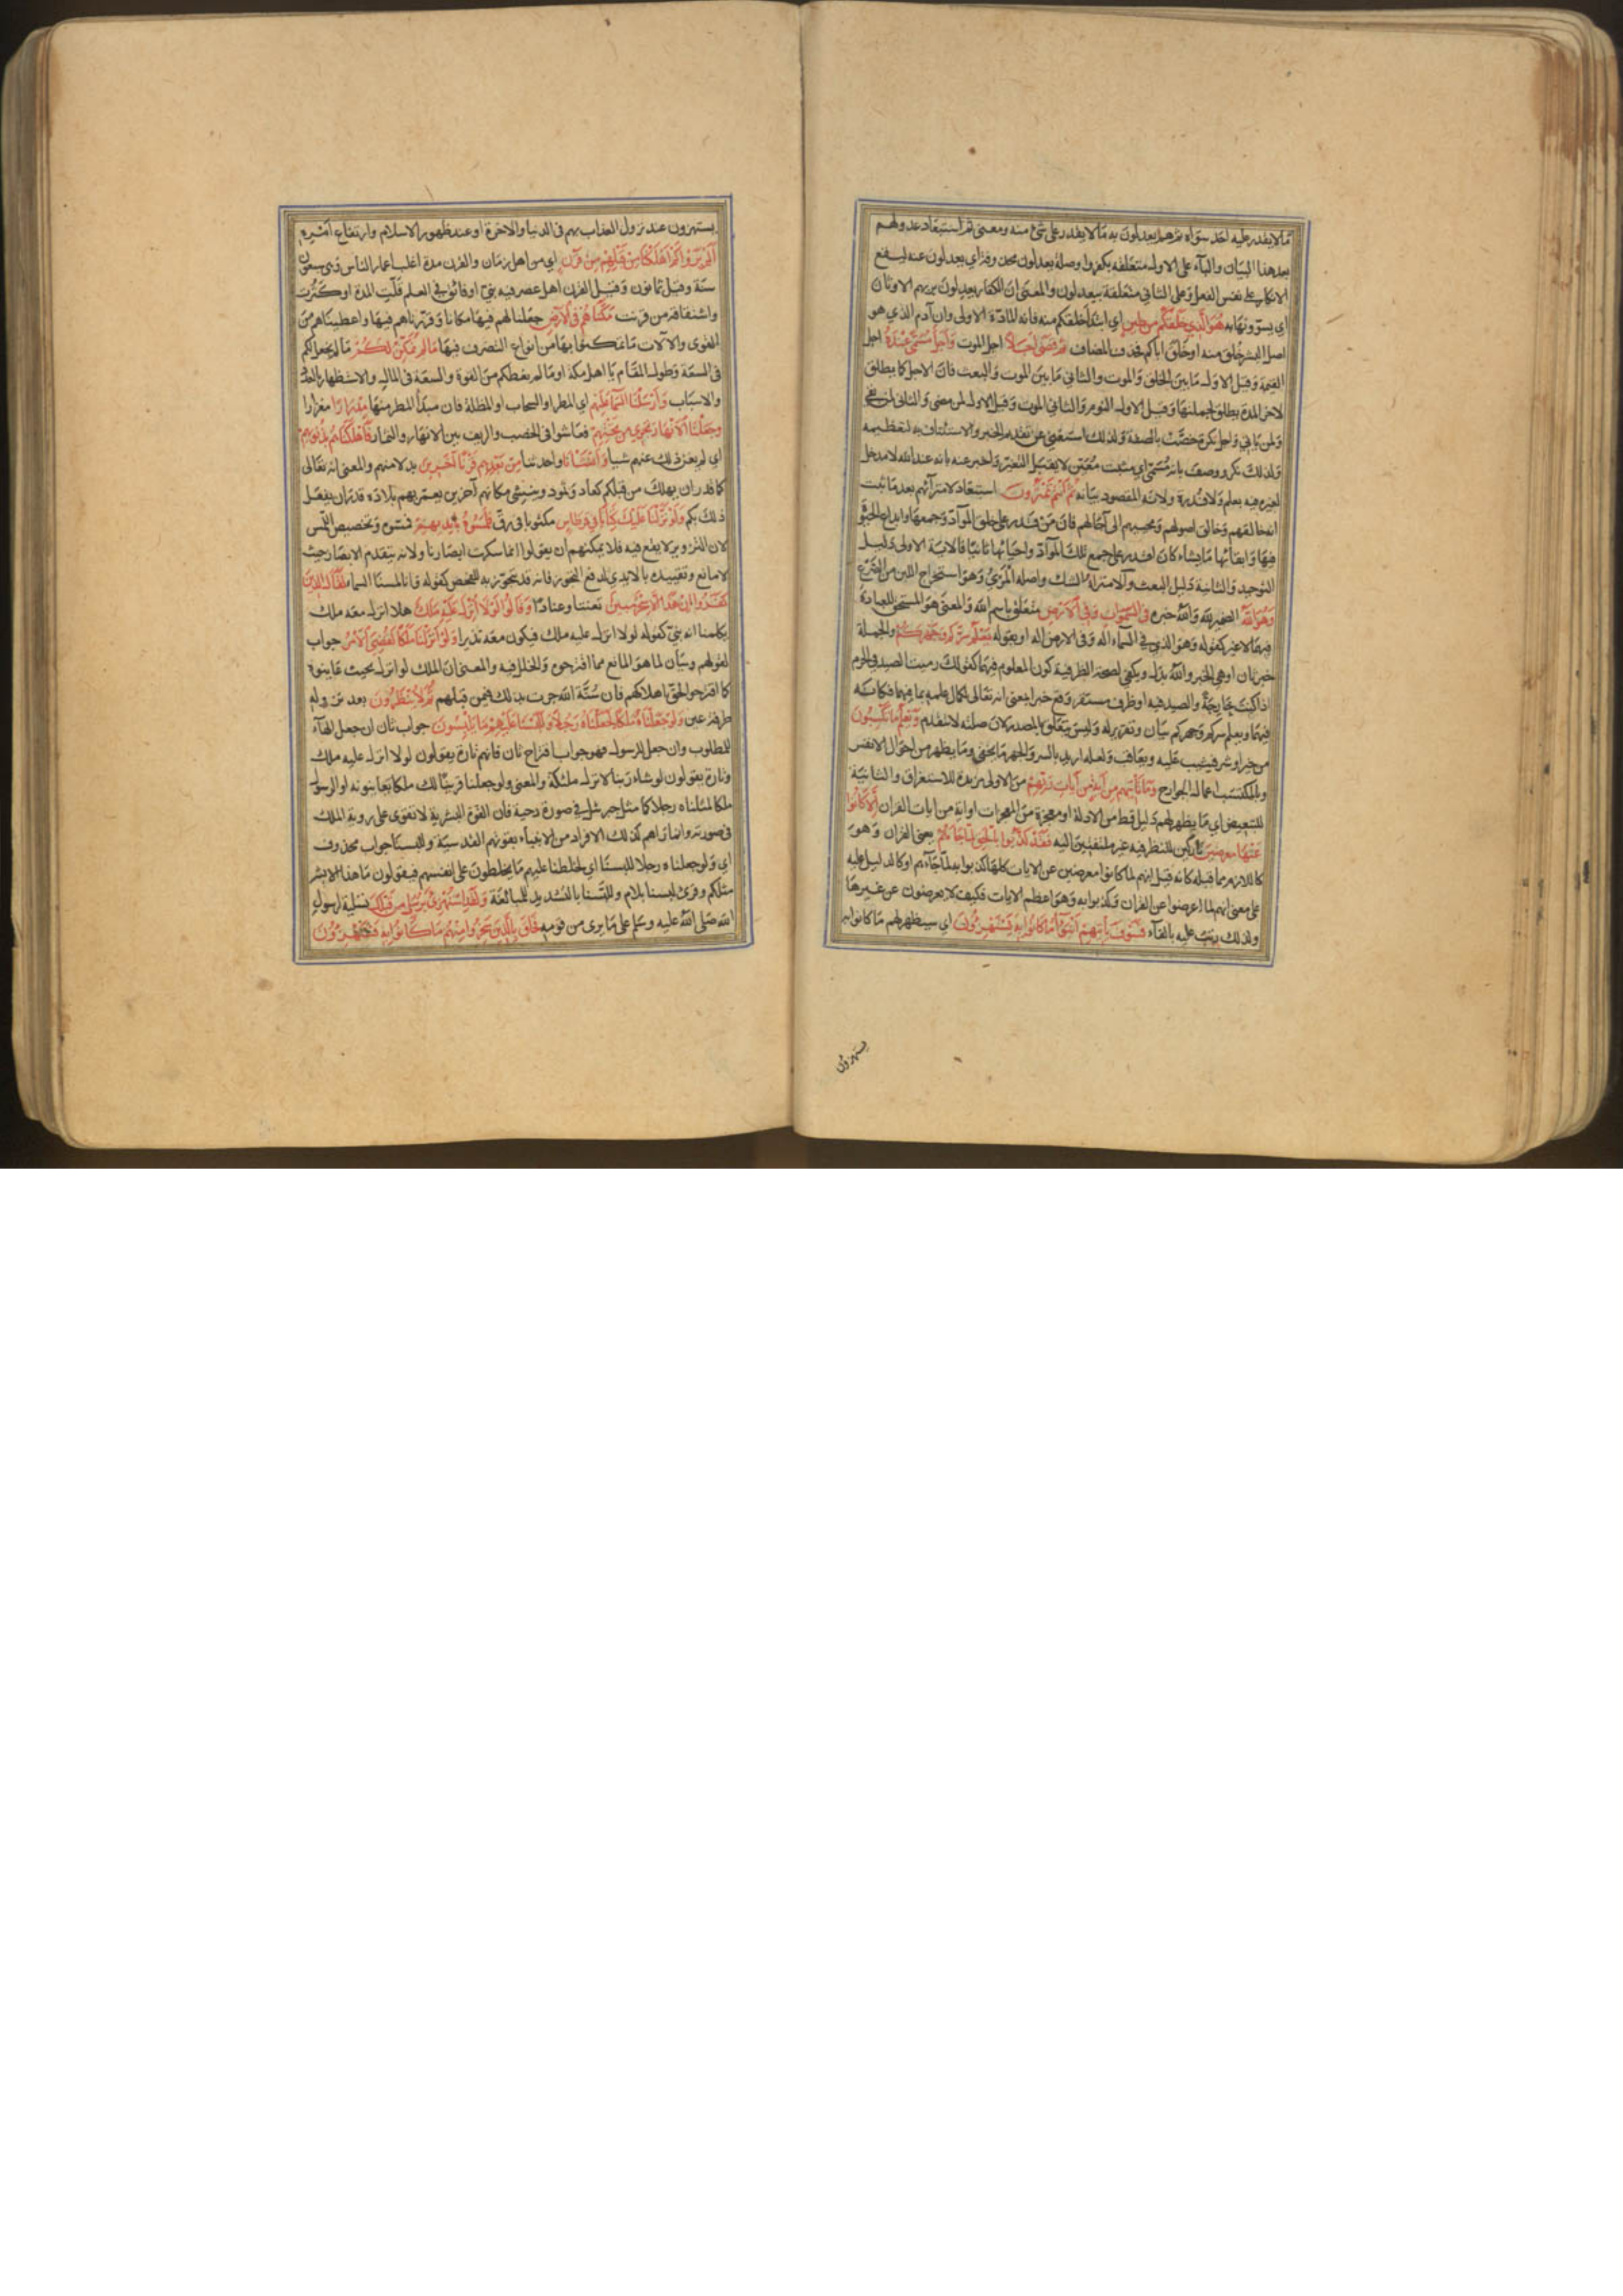 ما لا يقدر عليه احد سواه ثم هم يعدلون به ما لا يقدر على شئ منه ومعنى ثم استبعاد عدولهم
بعد هذا البيان والباء على الاول متعلقة بكفروا وصلة يعدلون محذوفة اي يعدلون عنه ليقع
الانكار على نفس الفعل وعلى الثاني متعلقة بيعدلون والمعنى ان الكفار يعدلون بربهم الاوثان
اي يسوونها به هو الذي خلقكم من طين اي ابتدا خلقكم منه فانه المادة الاولى وان آدم الذي هو
اصل البشر خلق منه او خلق اباكم فحذف المضاف ثم قضى اجلا اجل الموت واجل مسمى عنده اجل
القيمة وقيل الاول ما بين الخلق والموت والثاني ما بين الموت والبعث فان الاجل كما يطلق
لاخر المدة يطلق لجملتها وقيل الاول النوم والثاني الموت وقيل الاول لمن مضى والثاني لمن بقي
ولمن ياتي واجل نكرة خصصت بالصفة ولذلك استغنى عن تقديم الخبر والاستئناف به لتعظيمه
ولذلك نكر ووصف بانه مسمى اي مثبت معين لا يقبل التغير واخبر عنه بانه عند الله لا مدخل
لغيره فيه بعلم ولا قدرة ولانه المقصود بيانه ثم انتم تمترون استبعاد لامترائهم بعد ما ثبت
انه خالقهم وخالق اصولهم ومحييهم الى آجالهم فان من قدر على خلق المواد وجمعها وايداع الحيوة
فيها وابقائها ما يشاء كان اقدر على جمع تلك المواد واحيائها ثانيا فالاية الاولى دليل
التوحيد والثانية دليل البعث والامتراء الشك واصله المري وهو استخراج اللبن من الضرع
وهو الله الضمير لله والله خبره في السموات وفي الارض متعلق باسم الله والمعنى هو المستحق للعبادة
فيهما لا غير كقوله وهو الذي في السماء اله وفي الارض اله او بقوله يعلم سركم وجهركم والجملة
خبر ثان او هي الخبر والله بدل ويكفي لصحة الظرفية كون المعلوم فيهما كقولك رميت الصيد في الحرم
اذا كنت خارجه والصيد فيه او ظرف مستقر وقع خبرا بمعنى انه تعالى لكمال علمه بما فيهما فكانه
فيهما ويعلم سركم وجهركم بيان وتقرير له وليس متعلق بالمصدر لان صلته لا تتقدم ويعلم ما تكسبون
من خير او شر فيثيب عليه ويعاقب ولعله اريد بالسر والجهر ما يخفى وما يظهر من احوال الانفس
وبالمكتسب اعمال الجوارح وما تاتيهم من آية من آيات ربهم من الاولى مزيدة للاستغراق والثانية
للتبعيض اي ما يظهر لهم دليل قط من الادلة او معجزة من المعجزات او اية من ايات القران الا كانوا
عنها معرضين تاركين للنظر فيه غير ملتفتين اليه فقد كذبوا بالحق لما جاءهم يعني القران وهو
كاللازم مما قبله كانه قيل انهم لما كانوا معرضين عن الايات كلها كذبوا به لما جاءهم او كالدليل عليه
على معنى انهم لما اعرضوا عن القران وكذبوا به وهو اعظم الايات فكيف لا يعرضون عن غيرها
ولذلك رتب عليه بالفاء فسوف ياتيهم انبؤا ما كانوا به يستهزؤن اي سيظهر لهم ما كانوا به
يستهزؤن
يستهزؤن عند نزول العذاب بهم في الدنيا والاخرة او عند ظهور الاسلام وارتفاع امره
الم يروا كم اهلكنا من قبلهم من قرن اي من اهل زمان والقرن مدة اغلب اعمار الناس وهي سبعون
سنة وقيل ثمانون وقيل القرن اهل عصر فيه نبي او فائق في العلم قلت المدة او كثرت
واشتقاقه من قرنت مكناهم في الارض جعلنا لهم فيها مكانا وقررناهم فيها واعطيناهم من
القوى والآلات ما تمكنوا بها من انواع التصرف فيها ما لم نمكن لكم ما لم نجعل لكم
في السعة وطول المقام يا اهل مكة او ما لم نعطكم من القوة والسعة في المال والاستظهار بالعدد
والاسباب وارسلنا السماء عليهم اي المطر او السحاب او المظلة فان مبدأ المطر منها مدرارا مغزارا
وجعلنا الانهار تجري من تحتهم فعاشوا في الخصب والريف بين الانهار والثمار فاهلكناهم بذنوبهم
اي لم يغن ذلك عنهم شيا وانشانا واحدثنا من بعدهم قرنا آخرين بدلا منهم والمعنى انه تعالى
كما قدر ان يهلك من قبلكم كعاد وثمود وينشئ مكانهم آخرين يعمر بهم بلاده قدر ان يفعل
ذلك بكم ولو نزلنا عليك كتابا في قرطاس مكتوبا في رق فلمسوه بايديهم فمسوه وتخصيص اللمس
لان التزوير لا يقع فيه فلا يمكنهم ان يقولوا انما سكرت ابصارنا ولانه يتقدم الابصار حيث
لا مانع وتقييده بالايدي لدفع التجوز فانه قد يتجوز به للفحص كقوله وانا لمسنا السماء لقال الذين
كفروا ان هذا الا سحر مبين تعنتا وعنادا وقالوا لولا انزل عليه ملك هلا انزل معه ملك
يكلمنا انه نبي كقوله لولا انزل عليه ملك فيكون معه نذيرا ولو انزلنا ملكا لقضي الامر جواب
لقولهم وبيان لما هو المانع مما اقترحوه والخلل فيه والمعنى ان الملك لو انزل بحيث عاينوه
كما اقترحوا لحق اهلاكهم فان سنة الله جرت بذلك فيمن قبلهم ثم لا ينظرون بعد نزوله
طرفة عين ولو جعلناه ملكا لجعلناه رجلا وللبسنا عليهم ما يلبسون جواب ثان ان جعل الهاء
للمطلوب وان جعل للرسول فهو جواب اقتراح ثان فانهم تارة يقولون لولا انزل عليه ملك
وتارة يقولون لو شاء ربنا لانزل ملئكة والمعنى ولو جعلنا قرينا لك ملكا يعاينونه او الرسول
ملكا لمثلناه رجلا كما مثل جبرئيل في صورة دحية فان القوة البشرية لا تقوى على روية الملك
في صورته وانما رآهم كذلك الافراد من الانبياء بقوتهم القدسية وللبسنا جواب محذوف
اي ولو جعلناه رجلا للبسنا اي لخلطنا عليهم ما يخلطون على انفسهم فيقولون ما هذا الا بشر
مثلكم وقرئ لبسنا بلام وللبسنا بالتشديد للمبالغة ولقد استهزئ برسل من قبلك تسلية لرسول
الله صلى الله عليه وسلم على ما يرى من قومه فحاق بالذين سخروا منهم ما كانوا به يستهزؤن